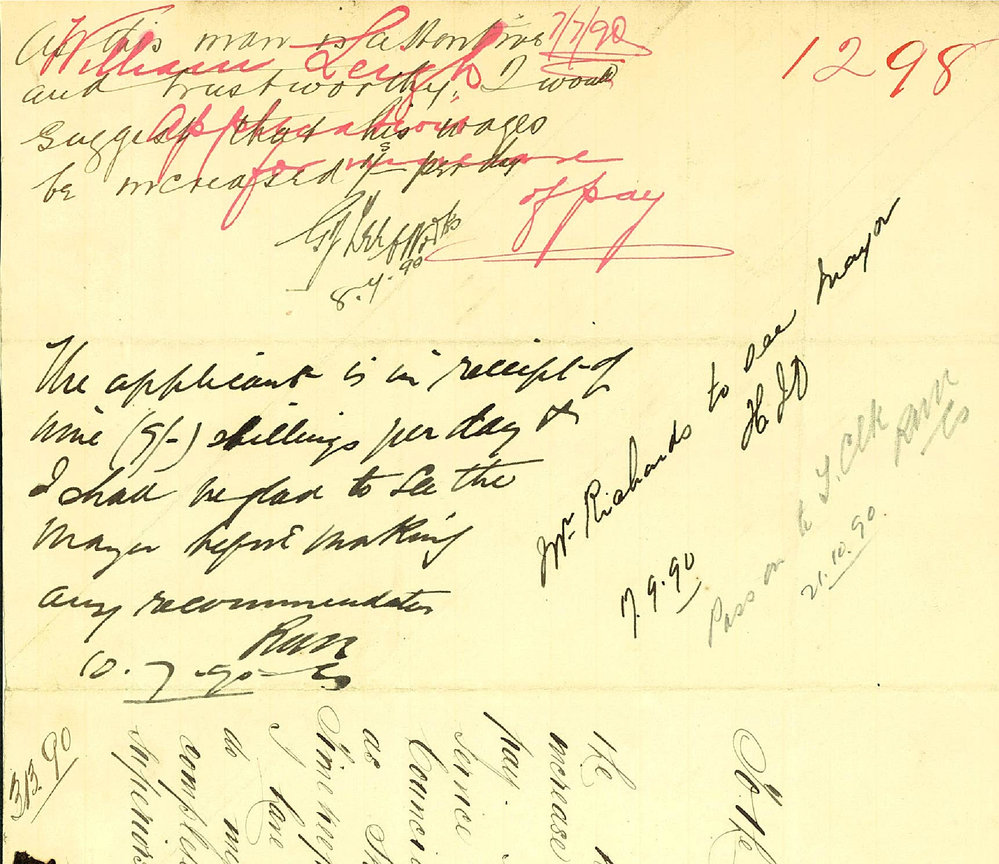 1298
William Leigh 7/7/90
Application
for increase
of pay
As this man is attentive
and trustworthy, I would
suggest that his wages
be increased 1/- per day
8.7.90
The applicant is in receipt of
nine (9/-) shillings per day &
I shall be glad to see the
Mayor before making
any recommendation
RWR
CS
10.7.90
Mr Richards to see Mayor
7.9.90
Pass on to T. Clk
RWR
CS
21.10.90.
313.90
To the
the
increase
pay.
service
Counci
as
Timekeep
I have
do my
comple
superiors